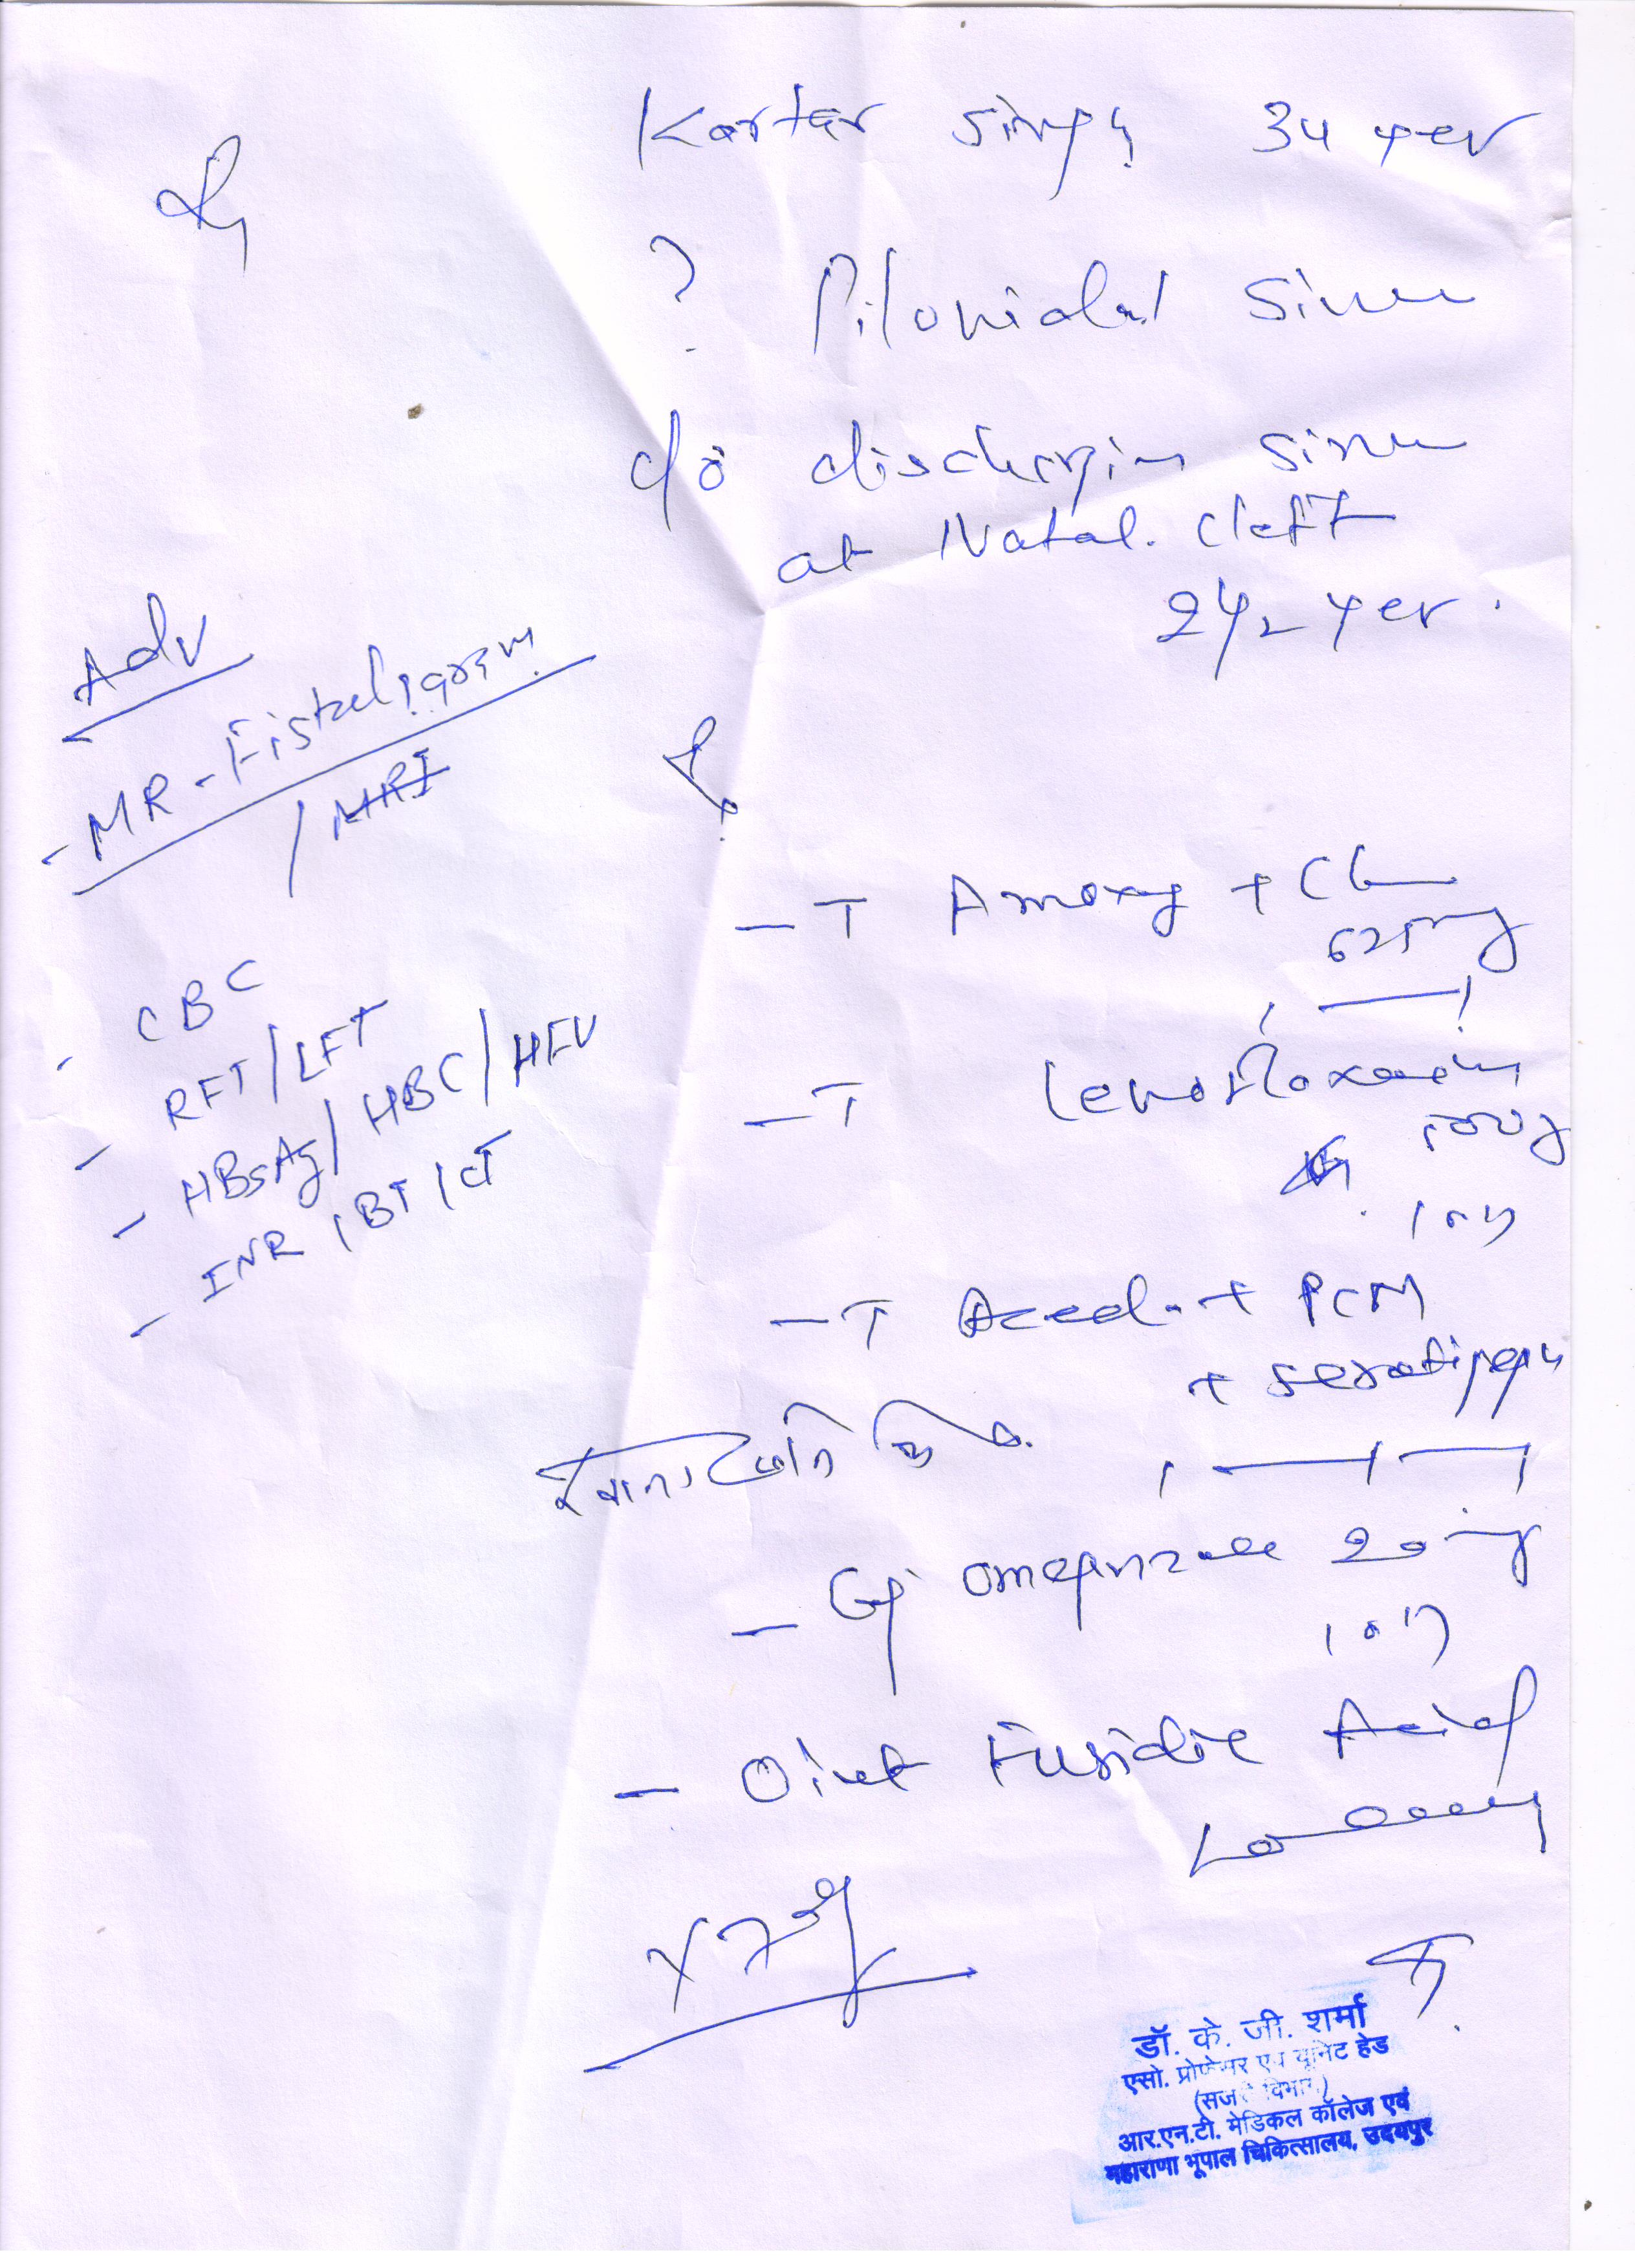 Kartar Singh 34 yer
? Pilonidal Sinus
c/o discharging sinus
at Natal. cleft
2 1/2 yer.
Adv
- MR - Fistulogram
/ MRI
- CBC
- RFT/LFT
- HBsAg/HBC/HIV
- INR / BT / CT
- T Amoxy + Cl
625mg
- T Levofloxacin
500mg
- T Aced. + PCM
+ seratipep
- Cap omeprazole 20mg
- Oint Fusidic Acid
x 7
डॉ. के. जी. शर्मा
एसो. प्रोफेसर एवं यूनिट हेड
(सर्जरी विभाग)
आर.एन.टी. मेडिकल कॉलेज एवं
महाराणा भूपाल चिकित्सालय, उदयपुर